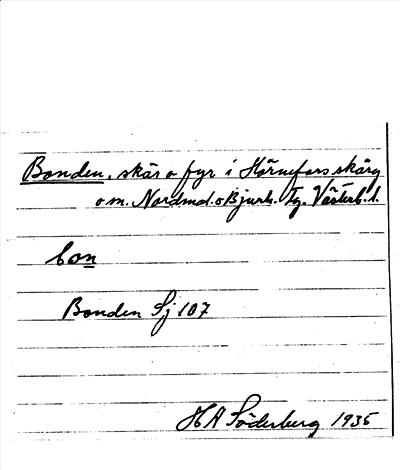 Bonden, skär o fyr i Hörnefors skärg
o m. Nordmal. o Bjurh. Tg. Västerb. l.
bon
Bonden Sj 107
H A Söderberg 1935